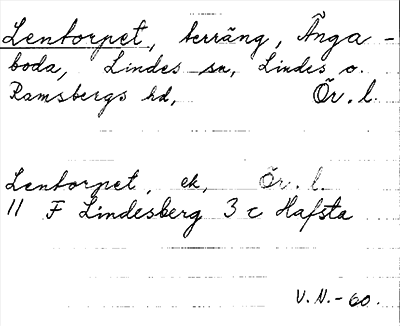 Lentorpet, terräng, Änga-
boda, Lindes sn, Lindes o.
Ramsbergs hd, Ör. l.
Lentorpet, ek, Ör. l.
11 F Lindesberg 3 c Hafsta
V.N.-60.